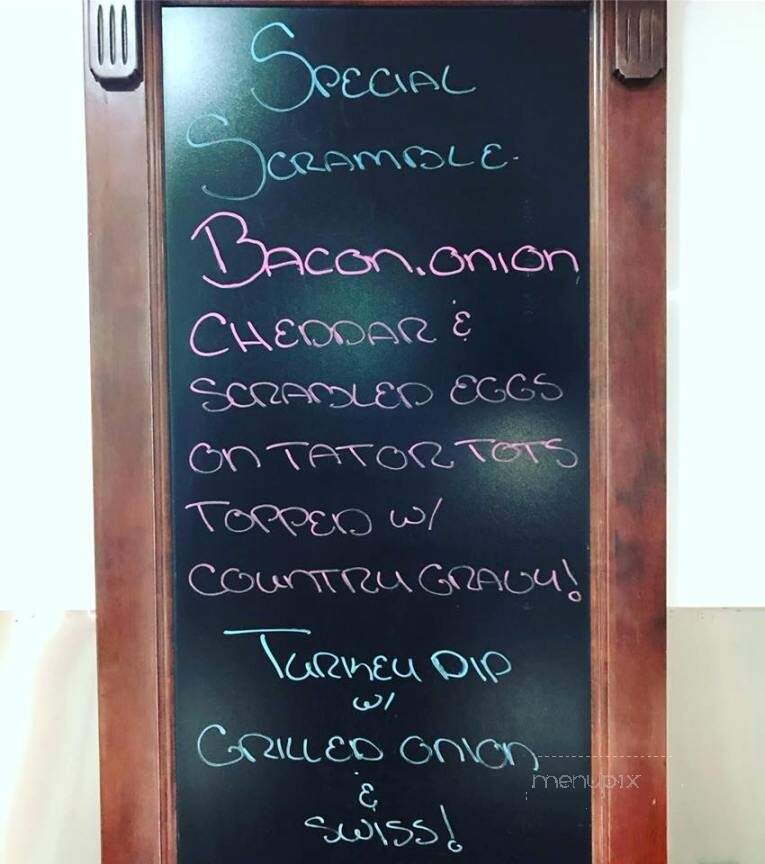 Special
Scramble.
Bacon, onion
Cheddar &
scrambled eggs
on tator tots
topped w/
country gravy!
Turkey dip
w/
Grilled onion
&
swiss!
menupix